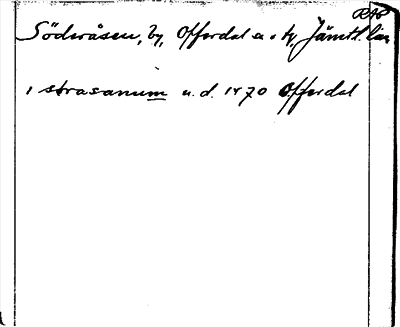 RAP
Söderåsen, by, Offerdal s. o. tg, Jämtl. län
i strasanum u.d. 1470 Offerdal